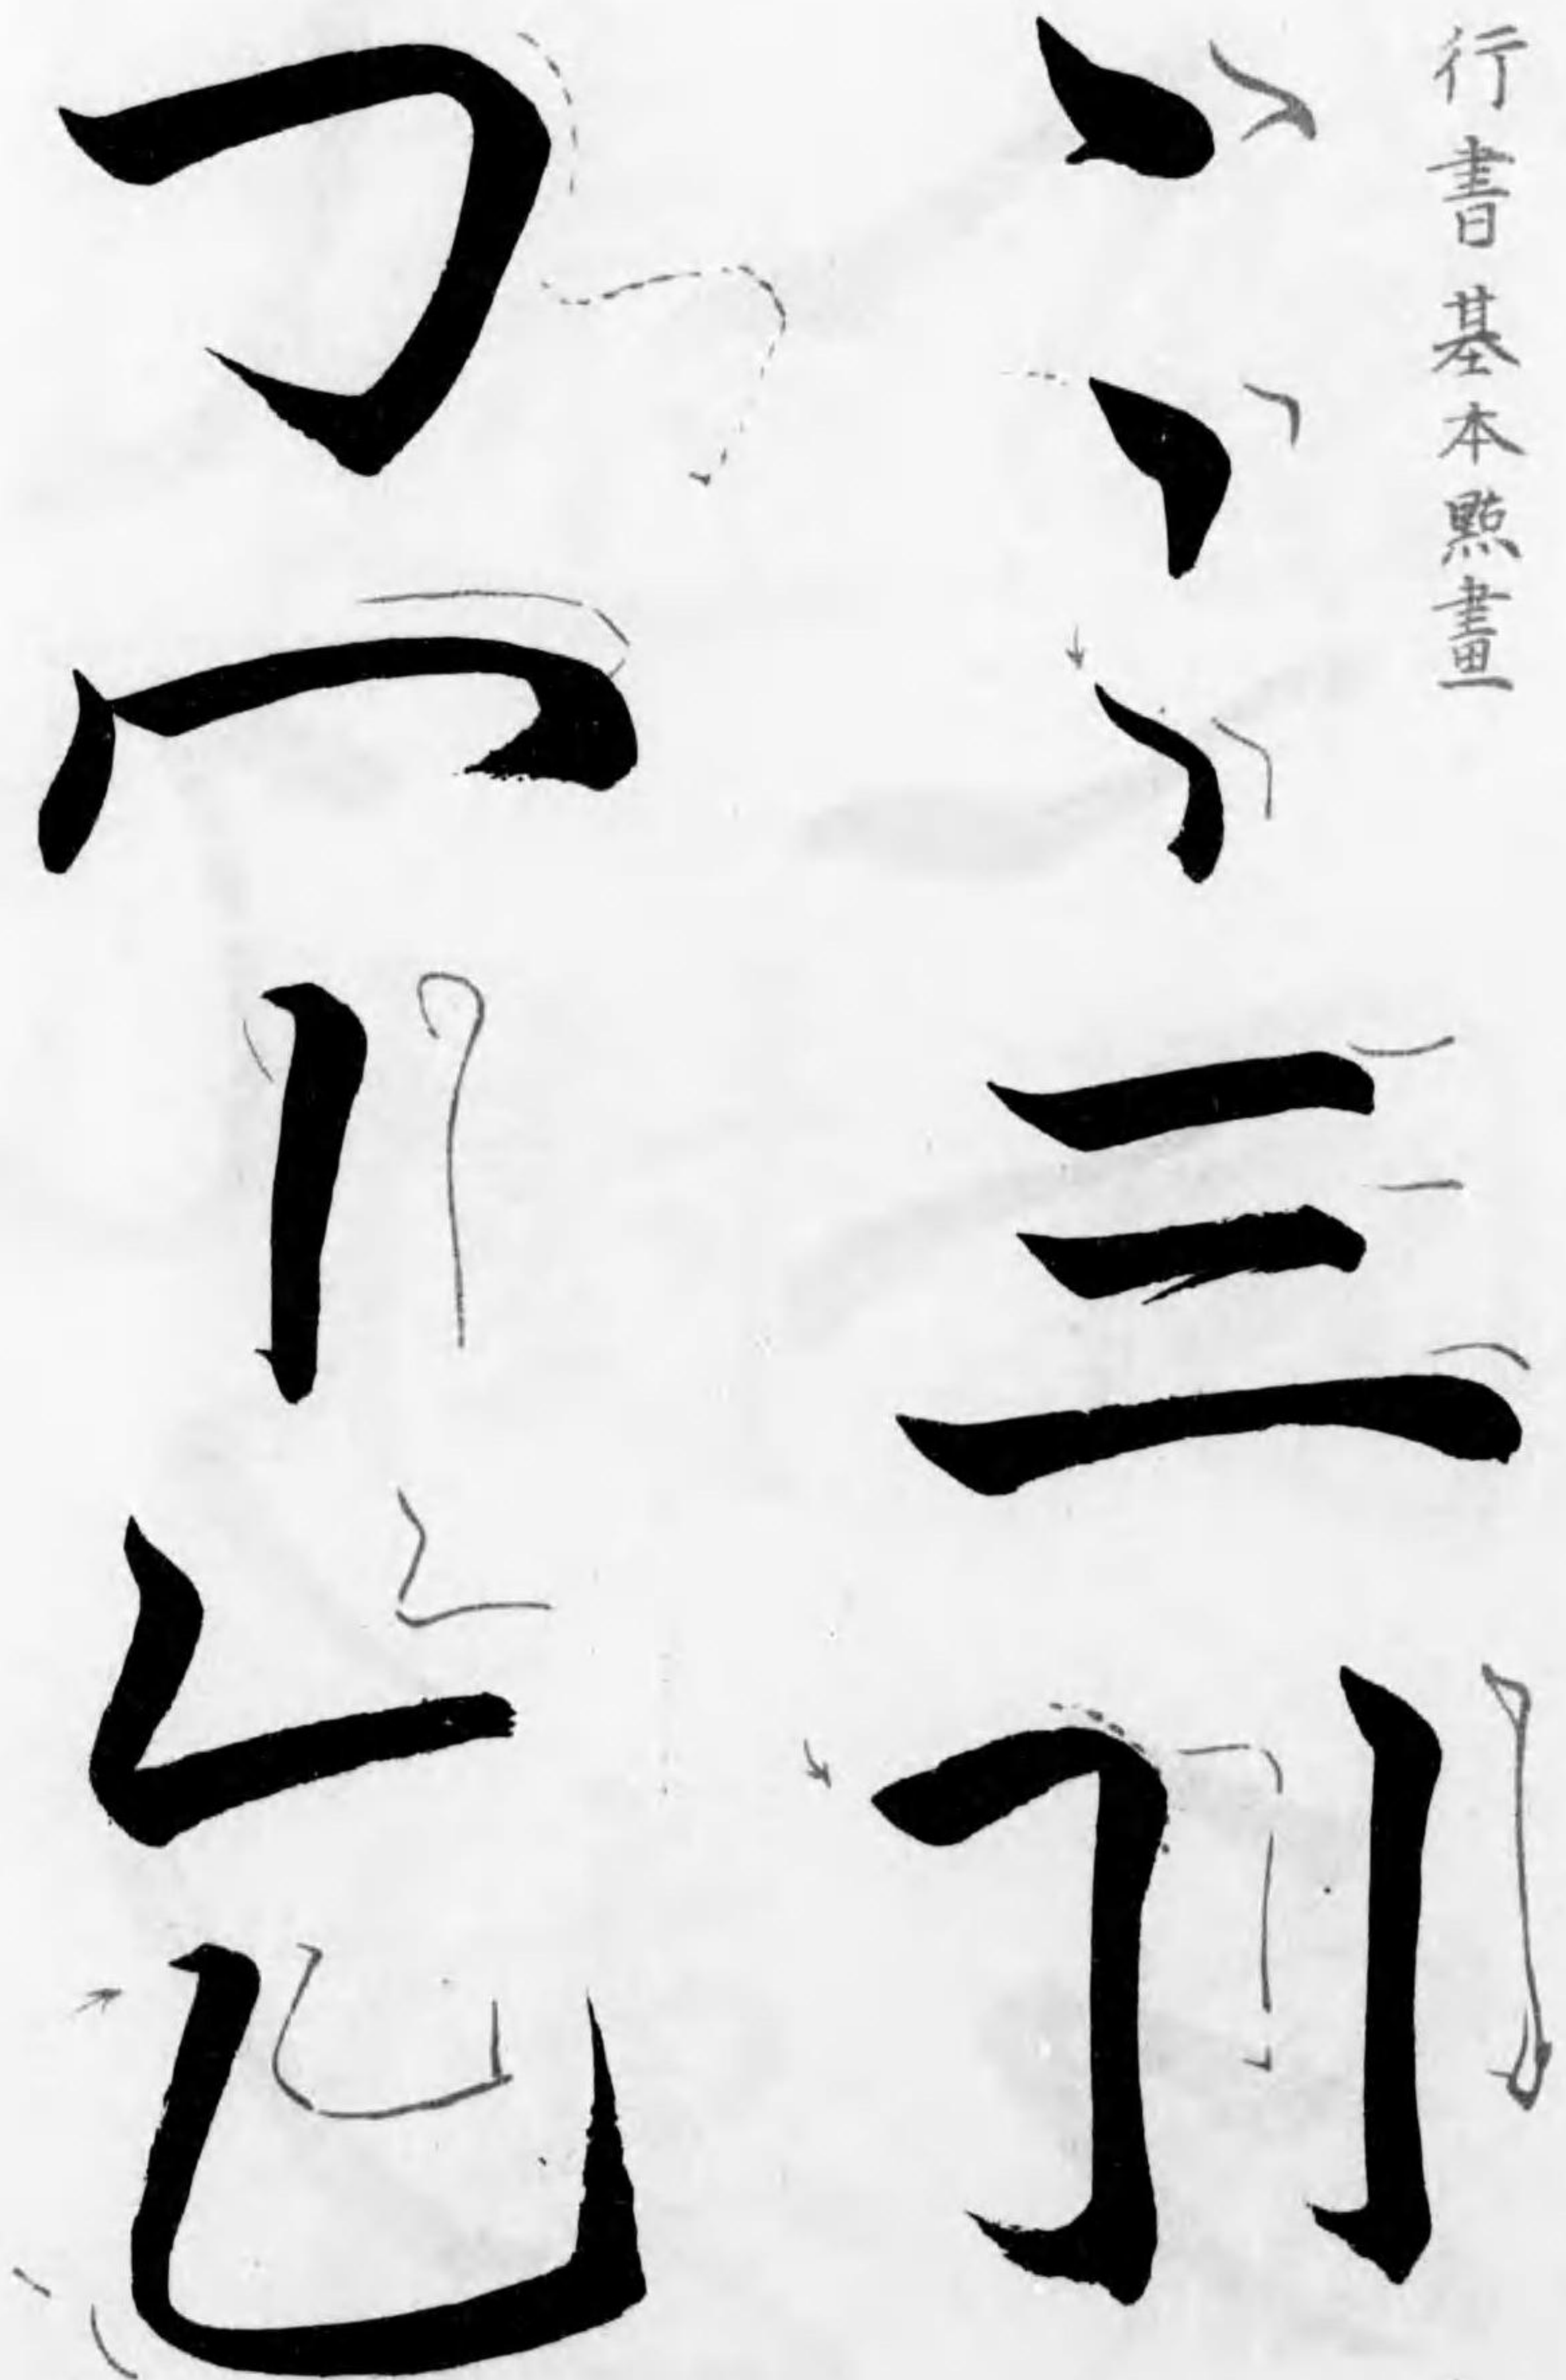 行書基本點畫